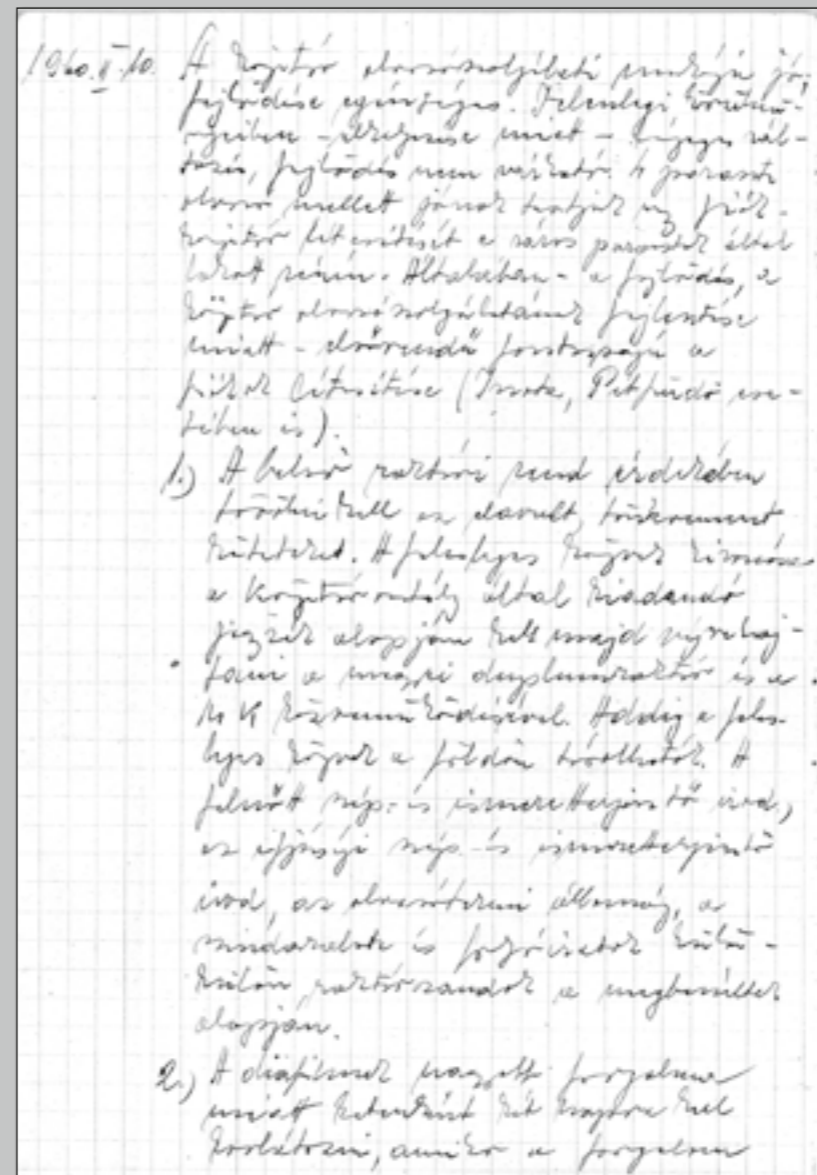 1960. II. 10. A könyvtár olvasószolgálati munkája jó,
fejlődése egészséges. Jelenlegi körülmé-
nyeiben - elhelyezése miatt - lényeges vál-
tozás, fejlődés nem várható. A paraszt
olvasó mellett jónak tartjuk egy fiók-
könyvtár létesítését a város parasztok által
lakott részén. Általában - a fejlődés, a
könyvtár olvasószolgálatának fejlesztése
miatt - elsőrendű fontosságú a
fiókok létesítése (Inota, Pétfürdő ese-
tében is).
1.) A belső raktári rend érdekében
törölni kell az elavult, tönkrement
köteteket. A felesleges könyvek kivonása
a Könyvtárosztály által kiadandó
jegyzék alapján kell majd végrehaj-
tani a megyei duplumraktár és a
MK közreműködésével. Addig a feles-
leges könyvek a földön tárolhatók. A
felnőtt szép- és ismeretterjesztő irod,
az ifjúsági szép- és ismeretterjesztő
irod, az olvasótermi állomány, a
mindazelőtt és folyóiratok külön-
külön raktározandók a megbeszéltek
alapján.
2.) A diafilmek nagyobb forgalma
miatt hetenként két napra kell
korlátozni, amikor a forgalom